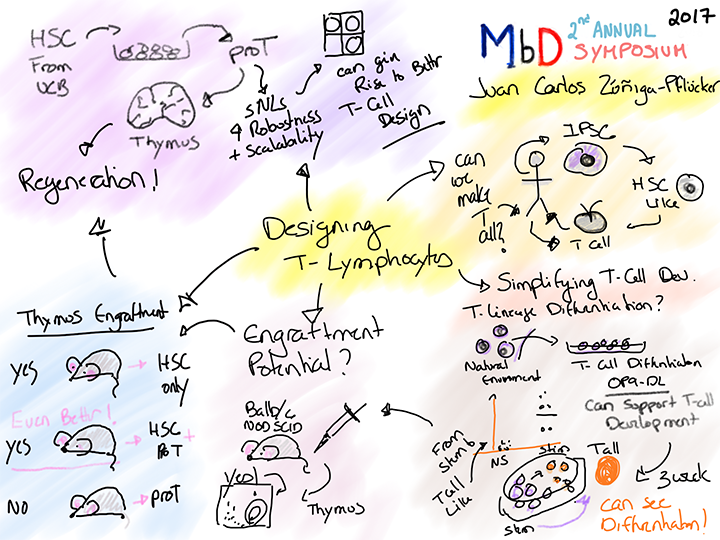 2017
MbD
2nd ANNUAL
SYMPOSIUM
Juan Carlos Zúñiga-Pflücker
HSC
From
UCB
proT
Thymus
Regeneration!
SNLs
4 Robustness
+ Scalability
can give
Rise to Bettr
T-Cell
Design
Designing
T-Lymphocytes
can
we
make
T
all?
IPSC
HSC
Like
T Cell
Simplifying T-Cell Dev.
T. Lineage Diffrentiation?
Natural
Environment
T-Cell Diffrentiation
OP9-DL
Can Support T-cell
Development
3 week
Tall
can see
Diffrentiation!
From
Stem
Tall
Like
NS
Stim
Stim
Engraftment
Potential?
Balb/c
NOD SCID
yes!
Thymus
Thymus Engraftment
yes
HSC
only
Even Bettr!
yes
HSC +
PoT
NO
proT